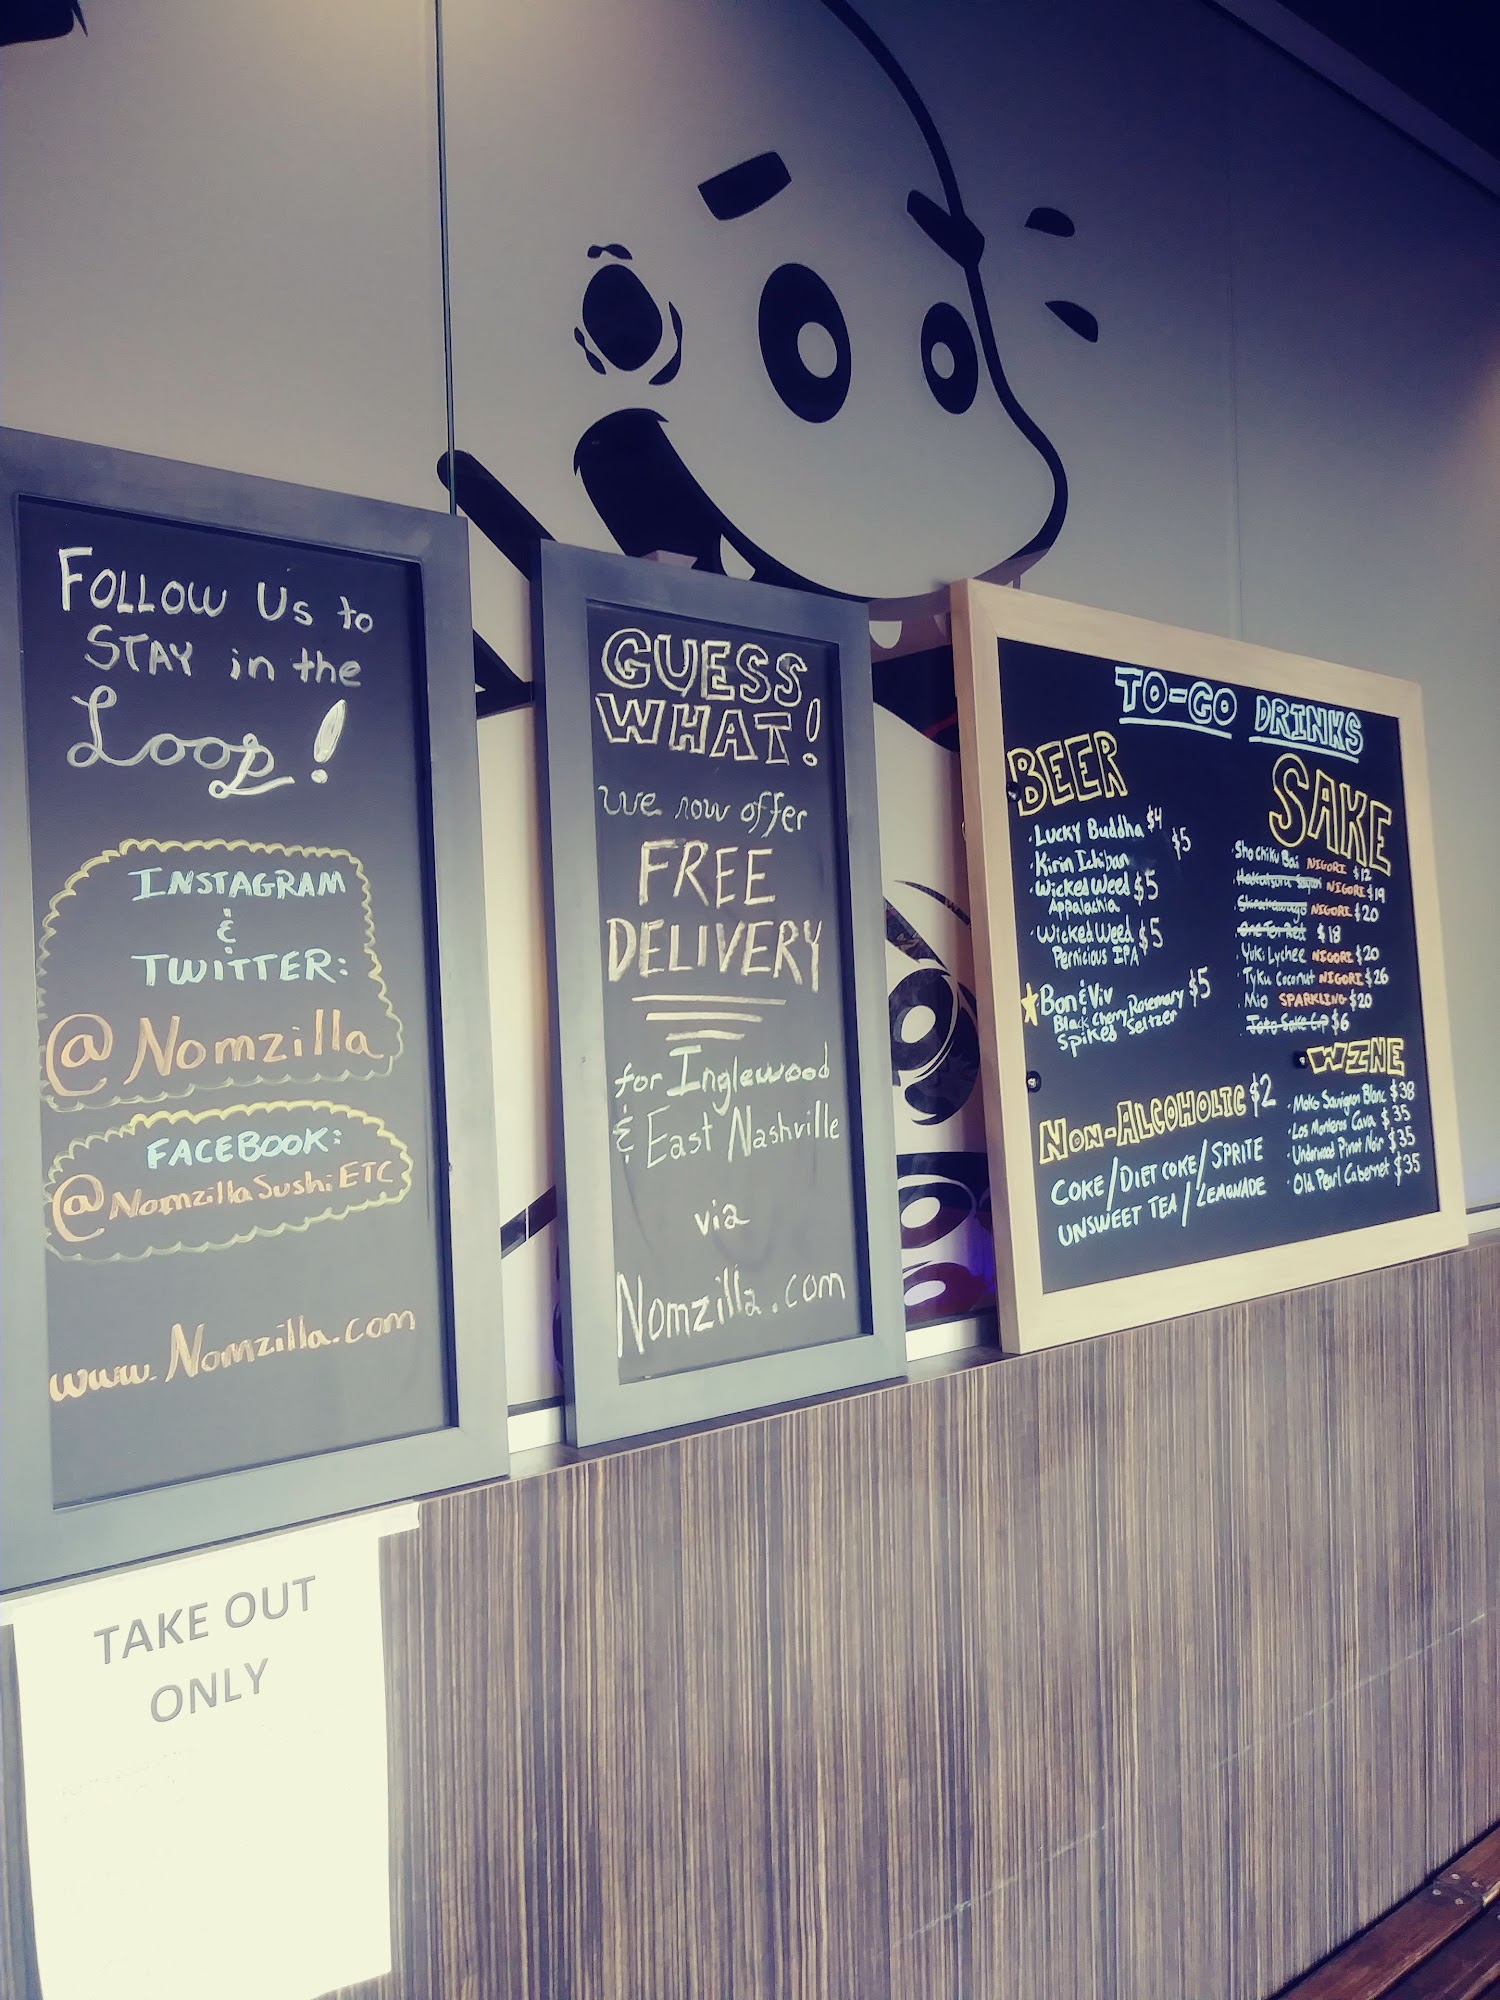 FOLLOW Us to
STAY in the
Loop!
INSTAGRAM
&
TWITTER:
@Nomzilla
FACEBOOK:
@NomzillaSushiETC
www.Nomzilla.com
GUESS
WHAT!
we now offer
FREE
DELIVERY
for Inglewood
& East Nashville
via
Nomzilla.com
TO-GO DRINKS
BEER
· Lucky Buddha $4
· Kirin Ichiban $5
· Wicked Weed $5
Appalachia
· Wicked Weed $5
Pernicious IPA
Bon & Viv $5
Black Cherry Rosemary
Spiked Seltzer
NON-ALCOHOLIC $2
COKE/DIET COKE/SPRITE
UNSWEET TEA/LEMONADE
SAKE
· Sho Chiku Bai NIGORI $12
NIGORI $19
NIGORI $20
One For Red $18
· Yuki Lychee NIGORI $20
· TyKu Coconut NIGORI $26
· Mio SPARKLING $20
$6
WINE
· Moko Sauvignon Blanc $38
· Los Monteros Cava $35
· Underwood Pinot Noir $35
· Old Pearl Cabernet $35
TAKE OUT
ONLY